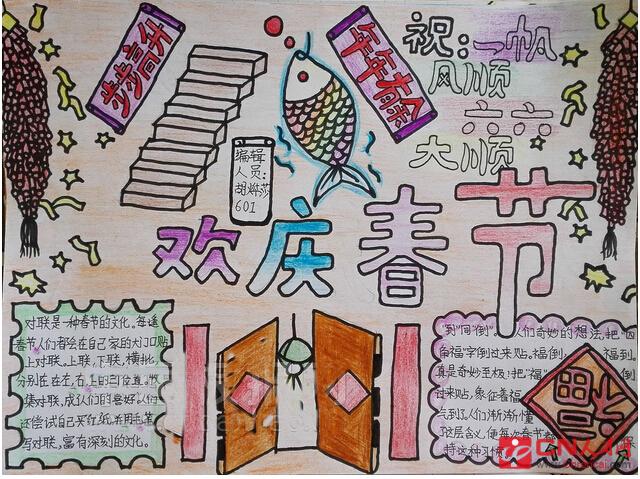 步步高升
年年有余
祝:一帆
风顺
六六
大顺
编辑
人员:
胡
601
欢庆春节
对联是一种春节的文化。每逢
春节人们都会在自己家的大门口贴
上对联。上联,下联,横批,
分别在左,右,上的三个位置。
对联,成人们的喜好,人们
还尝试自己买红纸,并用毛笔
写对联,富有深刻的文化。
"到"同"倒"。人们奇妙的想法,把"
福"字倒过来贴,福倒,福到,
真是奇妙至极!把"福"倒
过来贴,象征着福
气到了,人们渐渐懂
这层含义,便每次春节都
持这种习惯
福